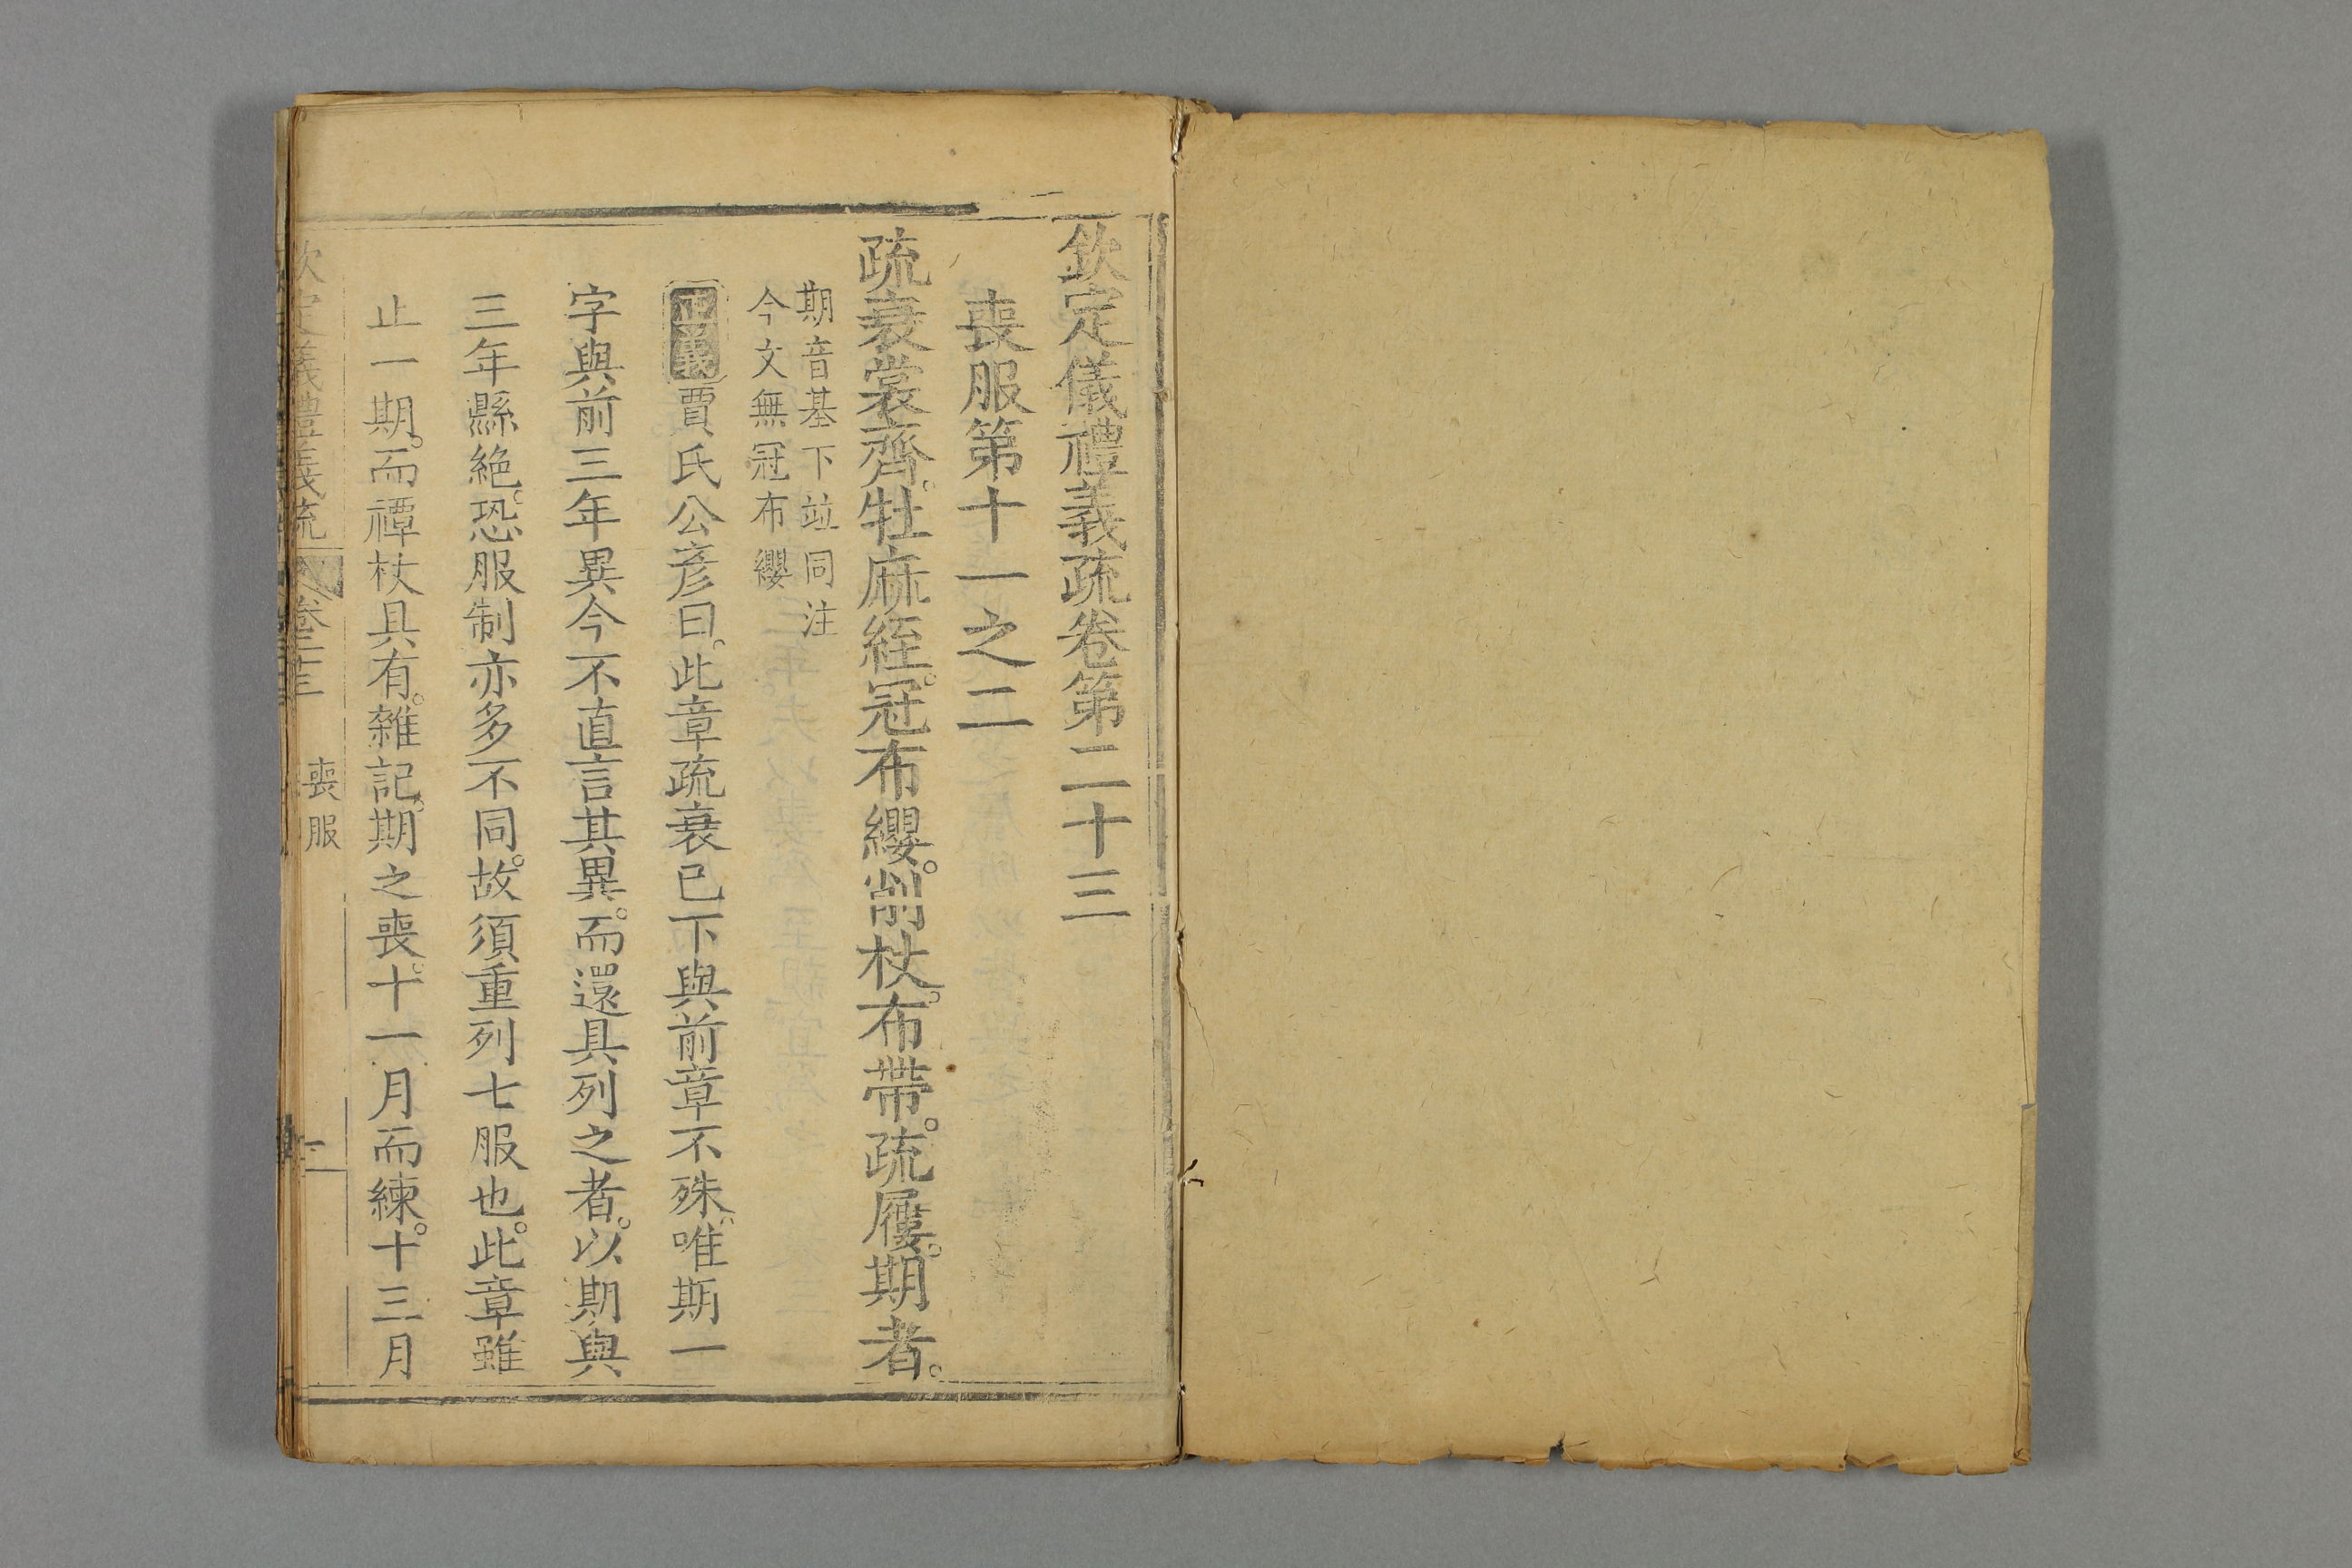 欽定儀禮義疏卷第二十三
喪服第十一之二
疏衰裳齊。牡麻絰。冠布纓。削杖。布帶。疏屨。期者。
期音基下竝同注
今文無冠布纓
正義賈氏公彥曰。此章疏衰已下與前章不殊。唯期一
字與前三年異今不直言其異。而還具列之者。以期與
三年懸絶。恐服制亦多不同。故須重列七服也。此章雖
止一期。而禫杖具有。雜記。期之喪。十一月而練。十三月
欽定儀禮義疏 卷二十三 喪服 一